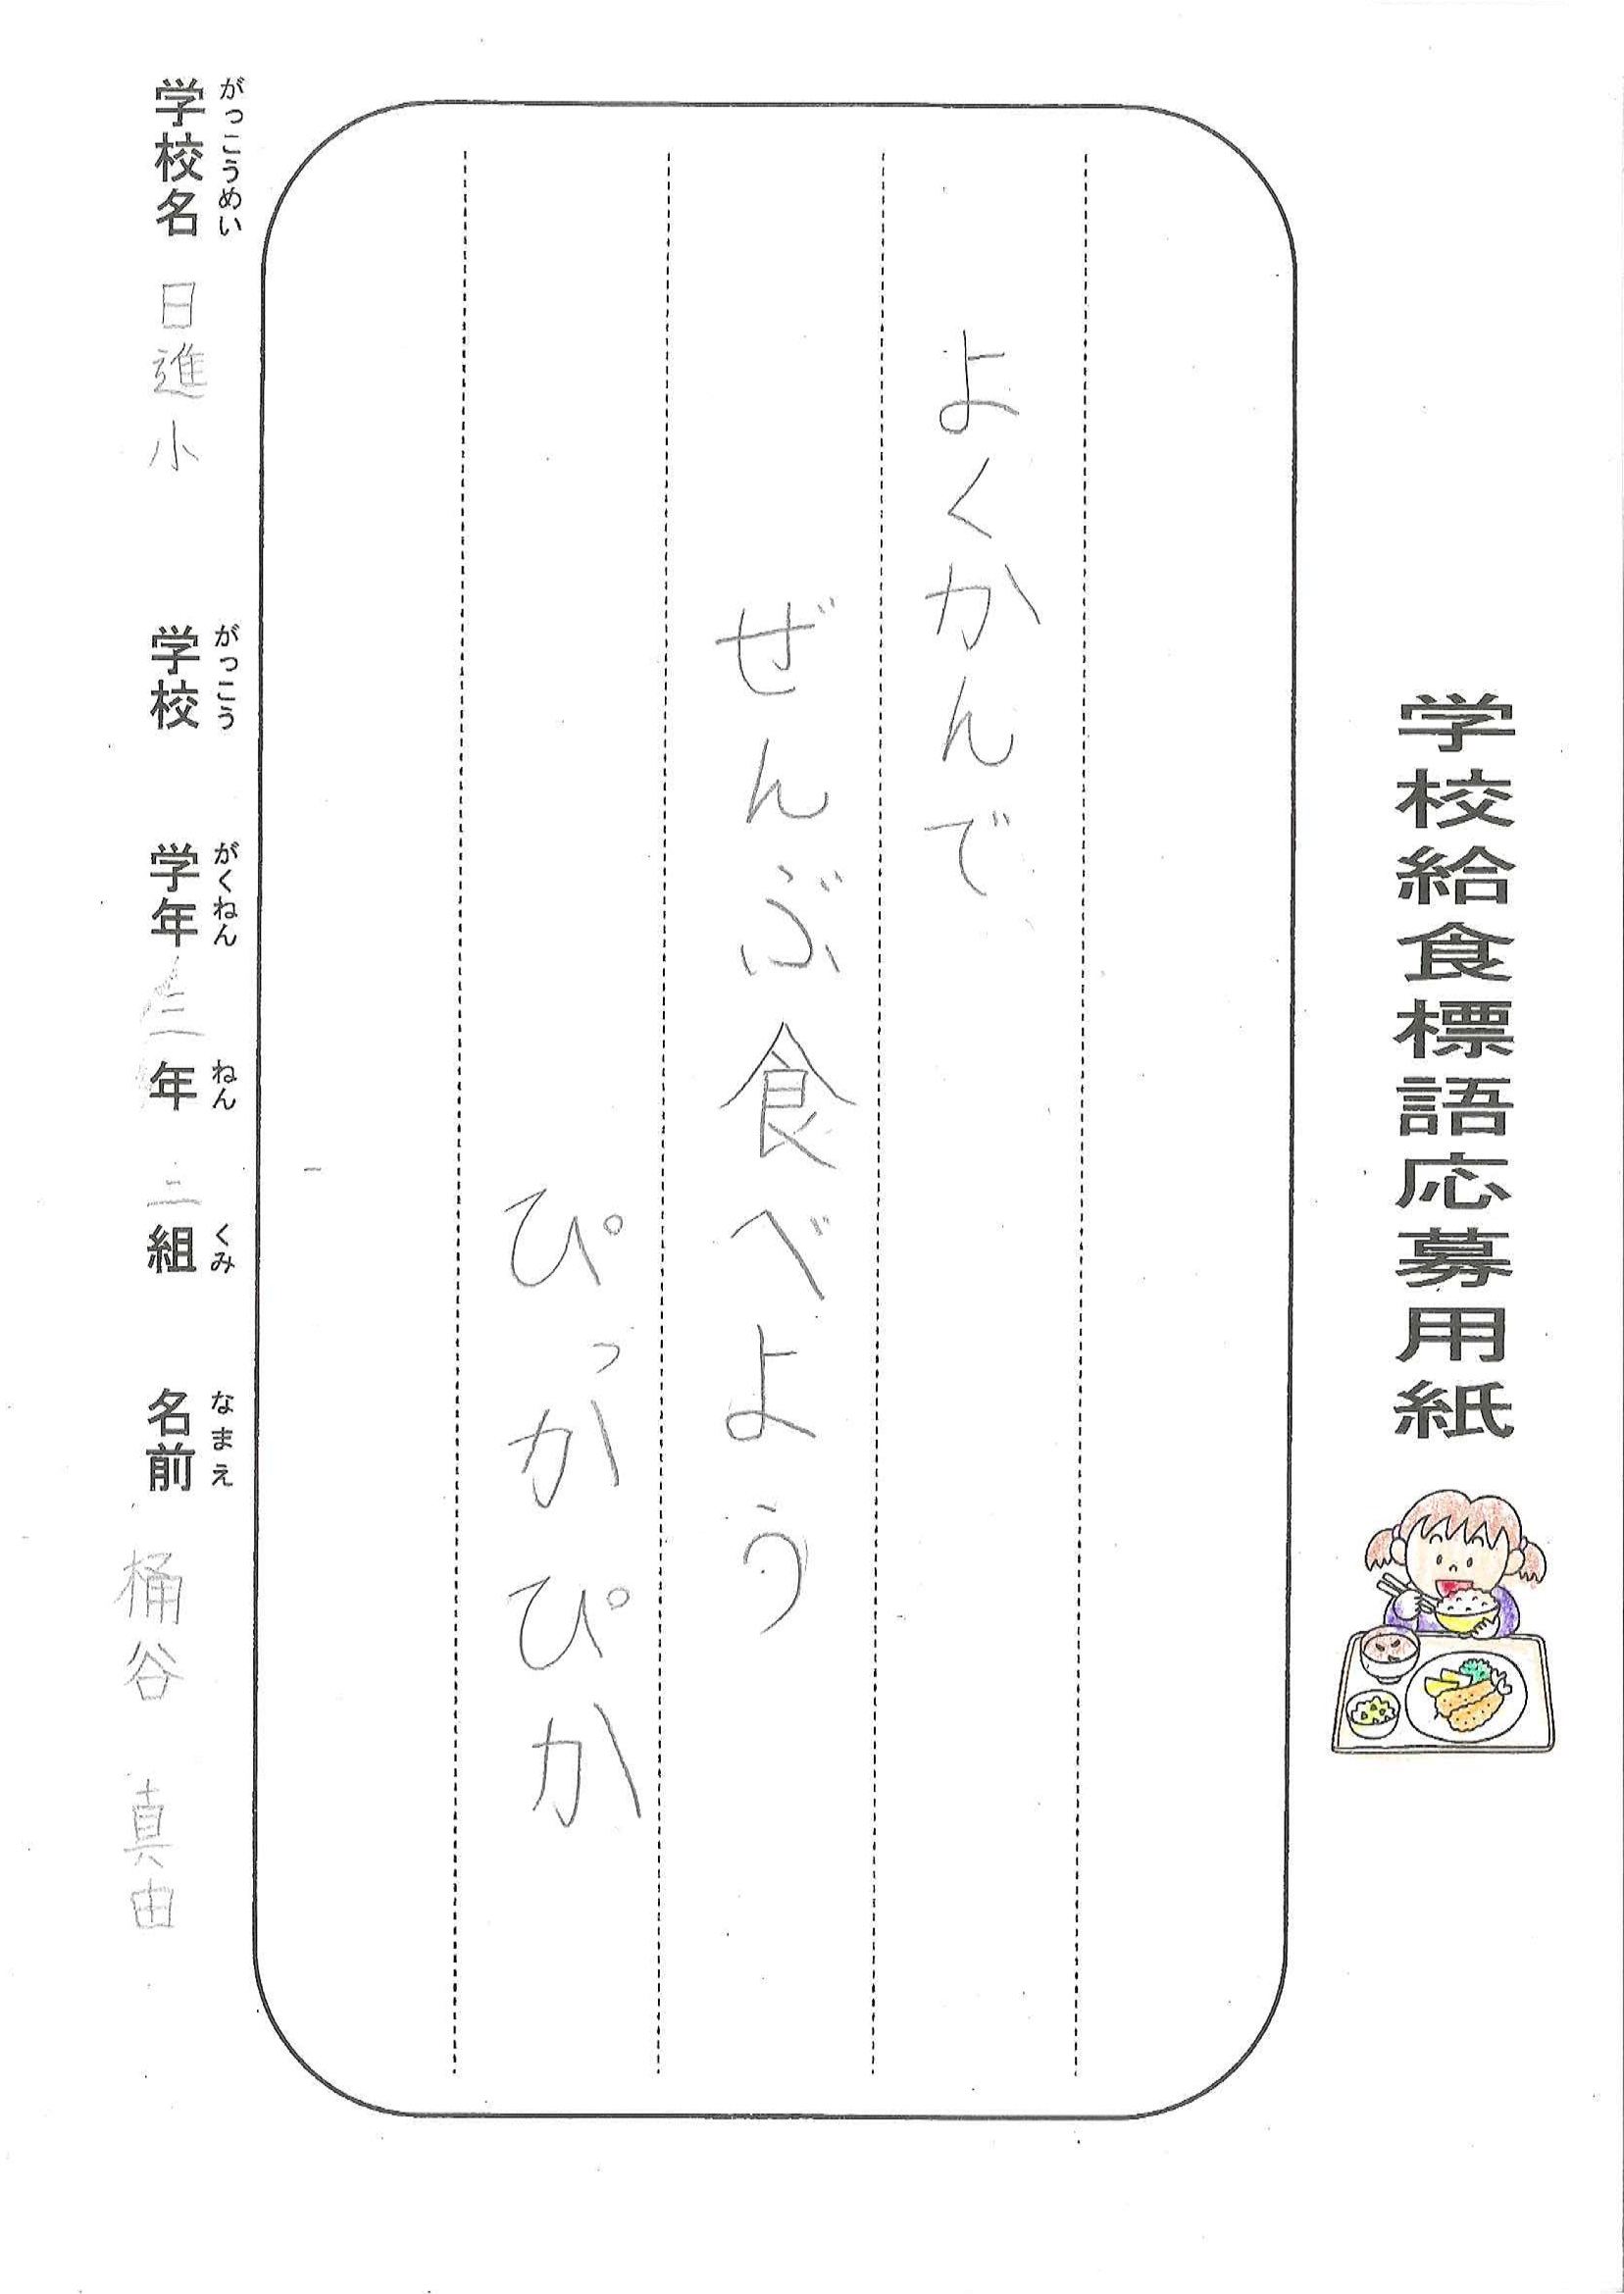 学校給食標語応募用紙
よくかんで
ぜんぶ食べよう
ぴっかぴか
がっこうめい がっこう がくねん ねん くみ なまえ
学校名 日進小 学校 学年 三年 二組 名前 桶谷 真由